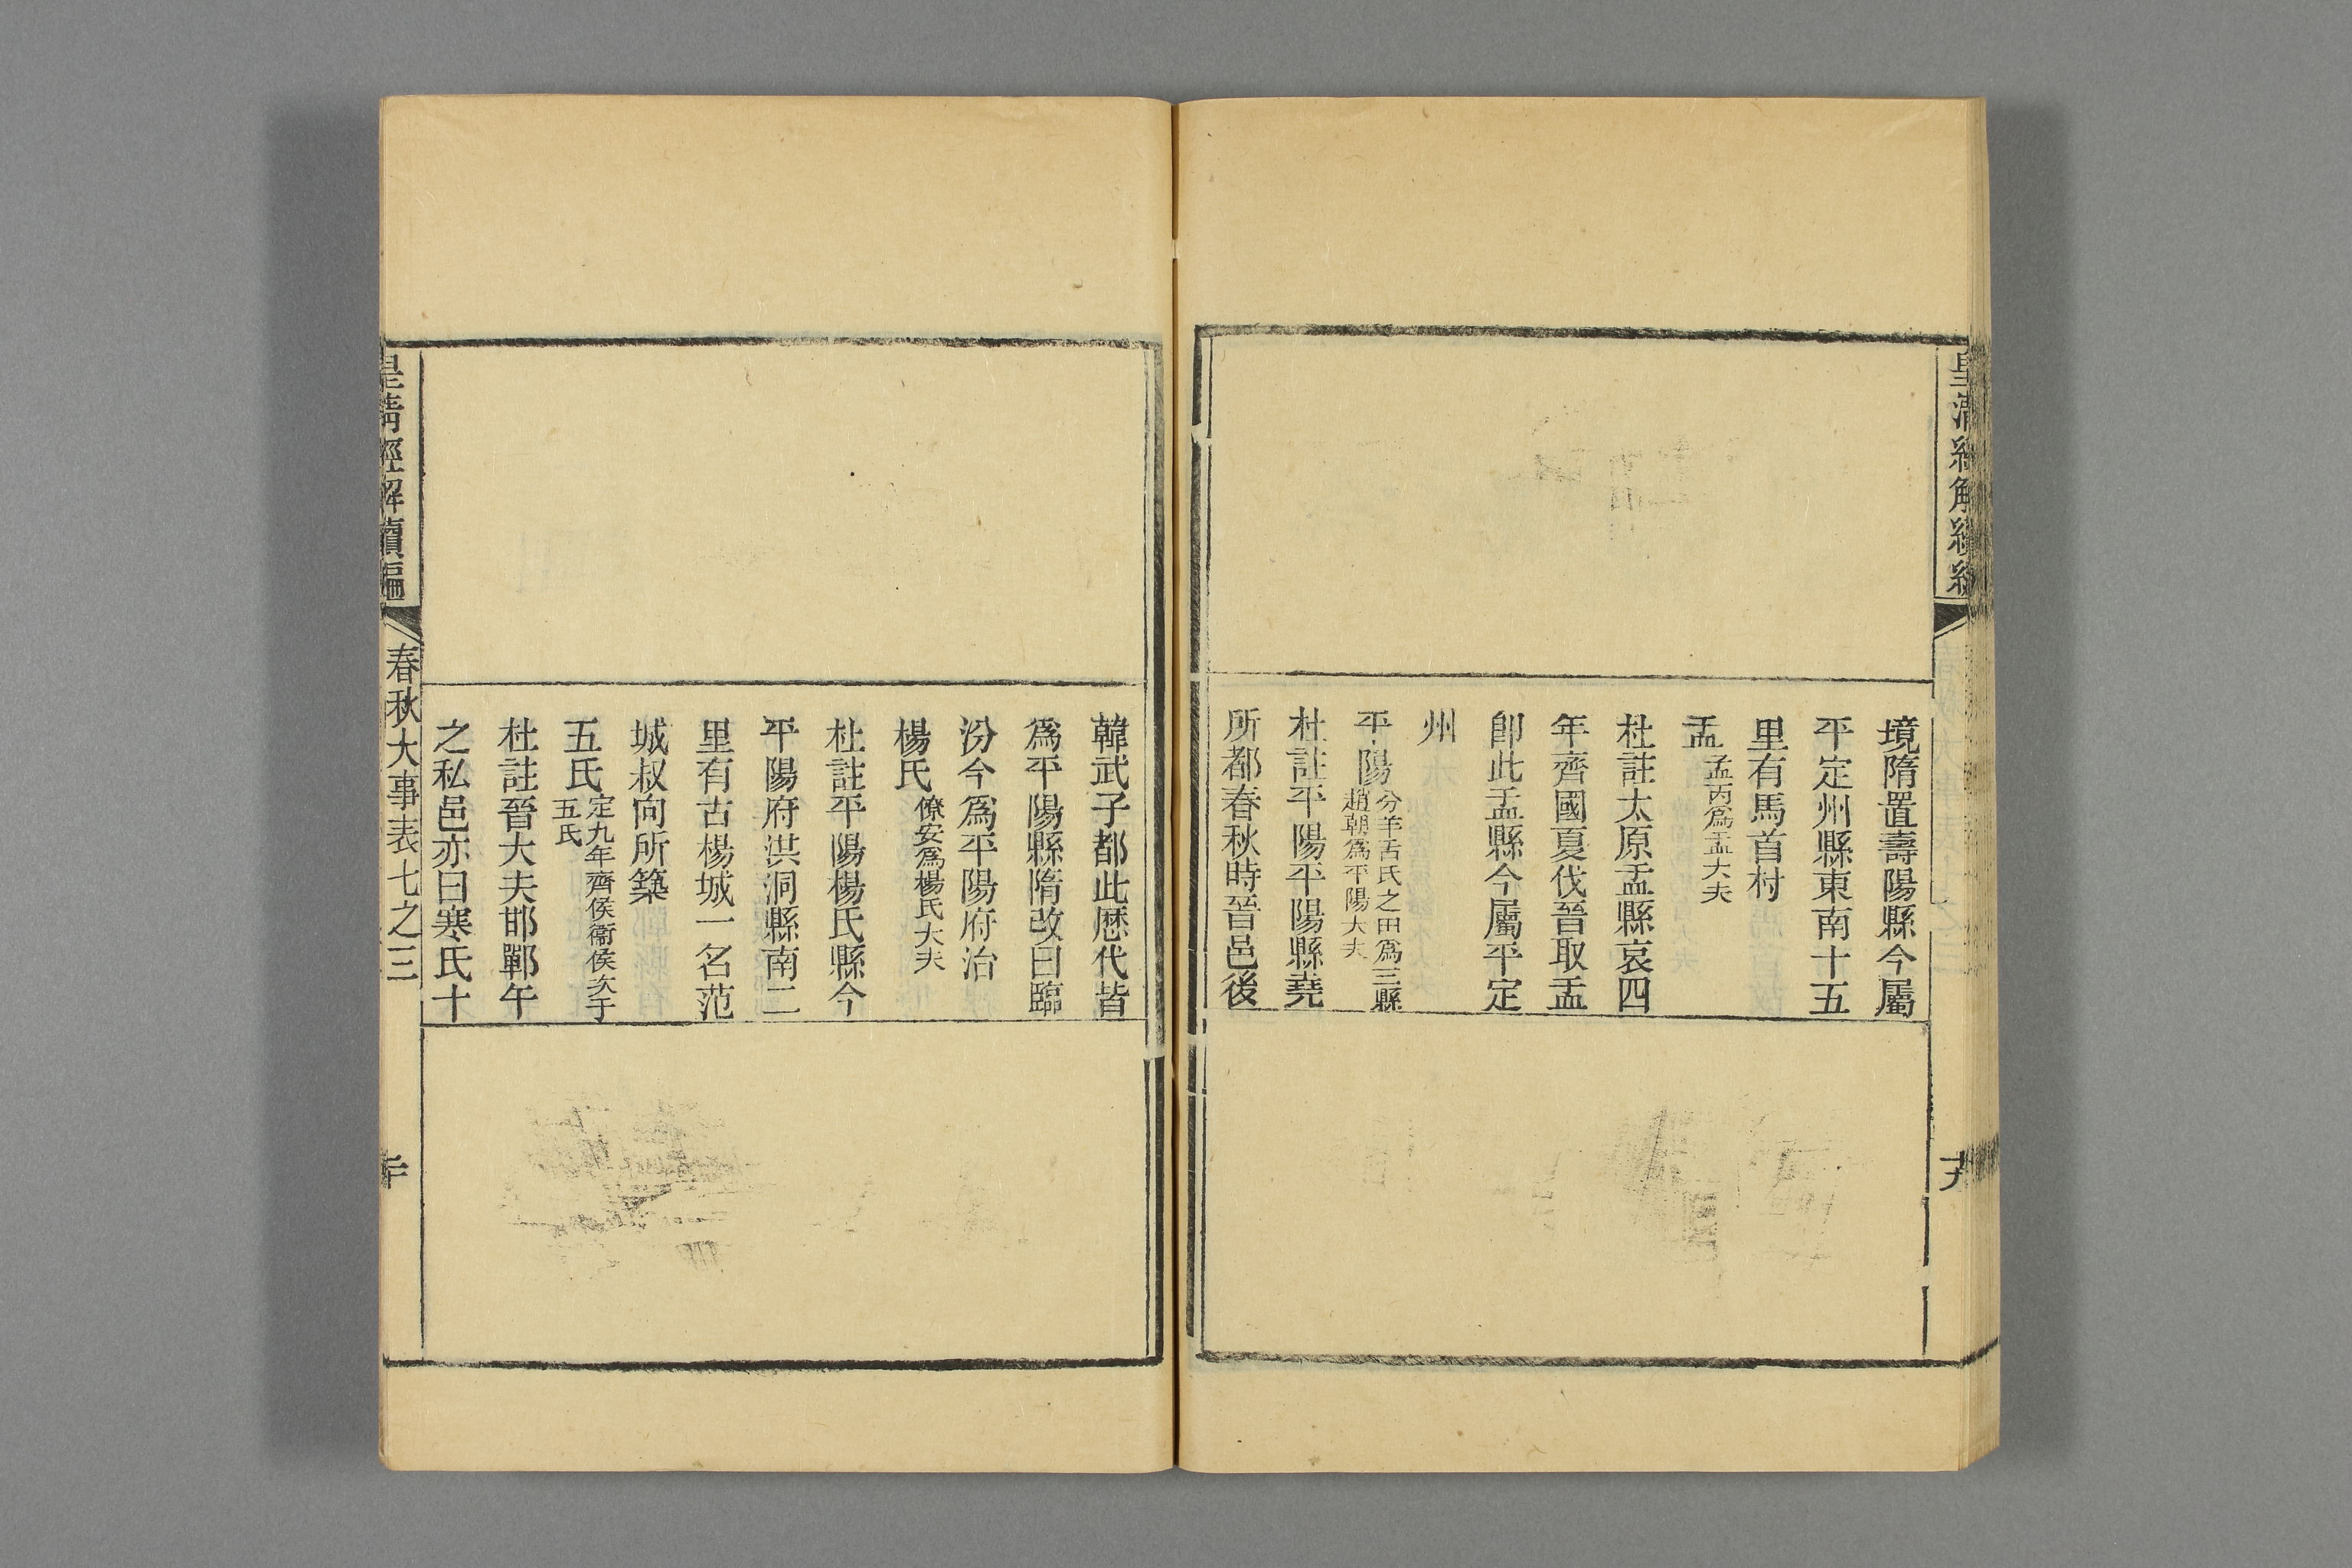 境隋置壽陽縣今屬
平定州縣東南十五
里有馬首村
盂孟丙爲盂大夫
杜註太原盂縣哀四
年齊國夏伐晉取盂
卽此盂縣今屬平定
州
平陽分羊舌氏之田爲三縣
趙朝爲平陽大夫
杜註平陽平陽縣堯
所都春秋時晉邑後
韓武子都此歴代皆
爲平陽縣隋改曰臨
汾今爲平陽府治
楊氏僚安爲楊氏大夫
杜註平陽楊氏縣今
平陽府洪洞縣南二
里有古楊城一名范
城叔向所築
五氏定九年齊侯衞侯次于
五氏
杜註晉大夫邯鄲午
之私邑亦曰寒氏十
皇清經解續編
春秋大事表七之三